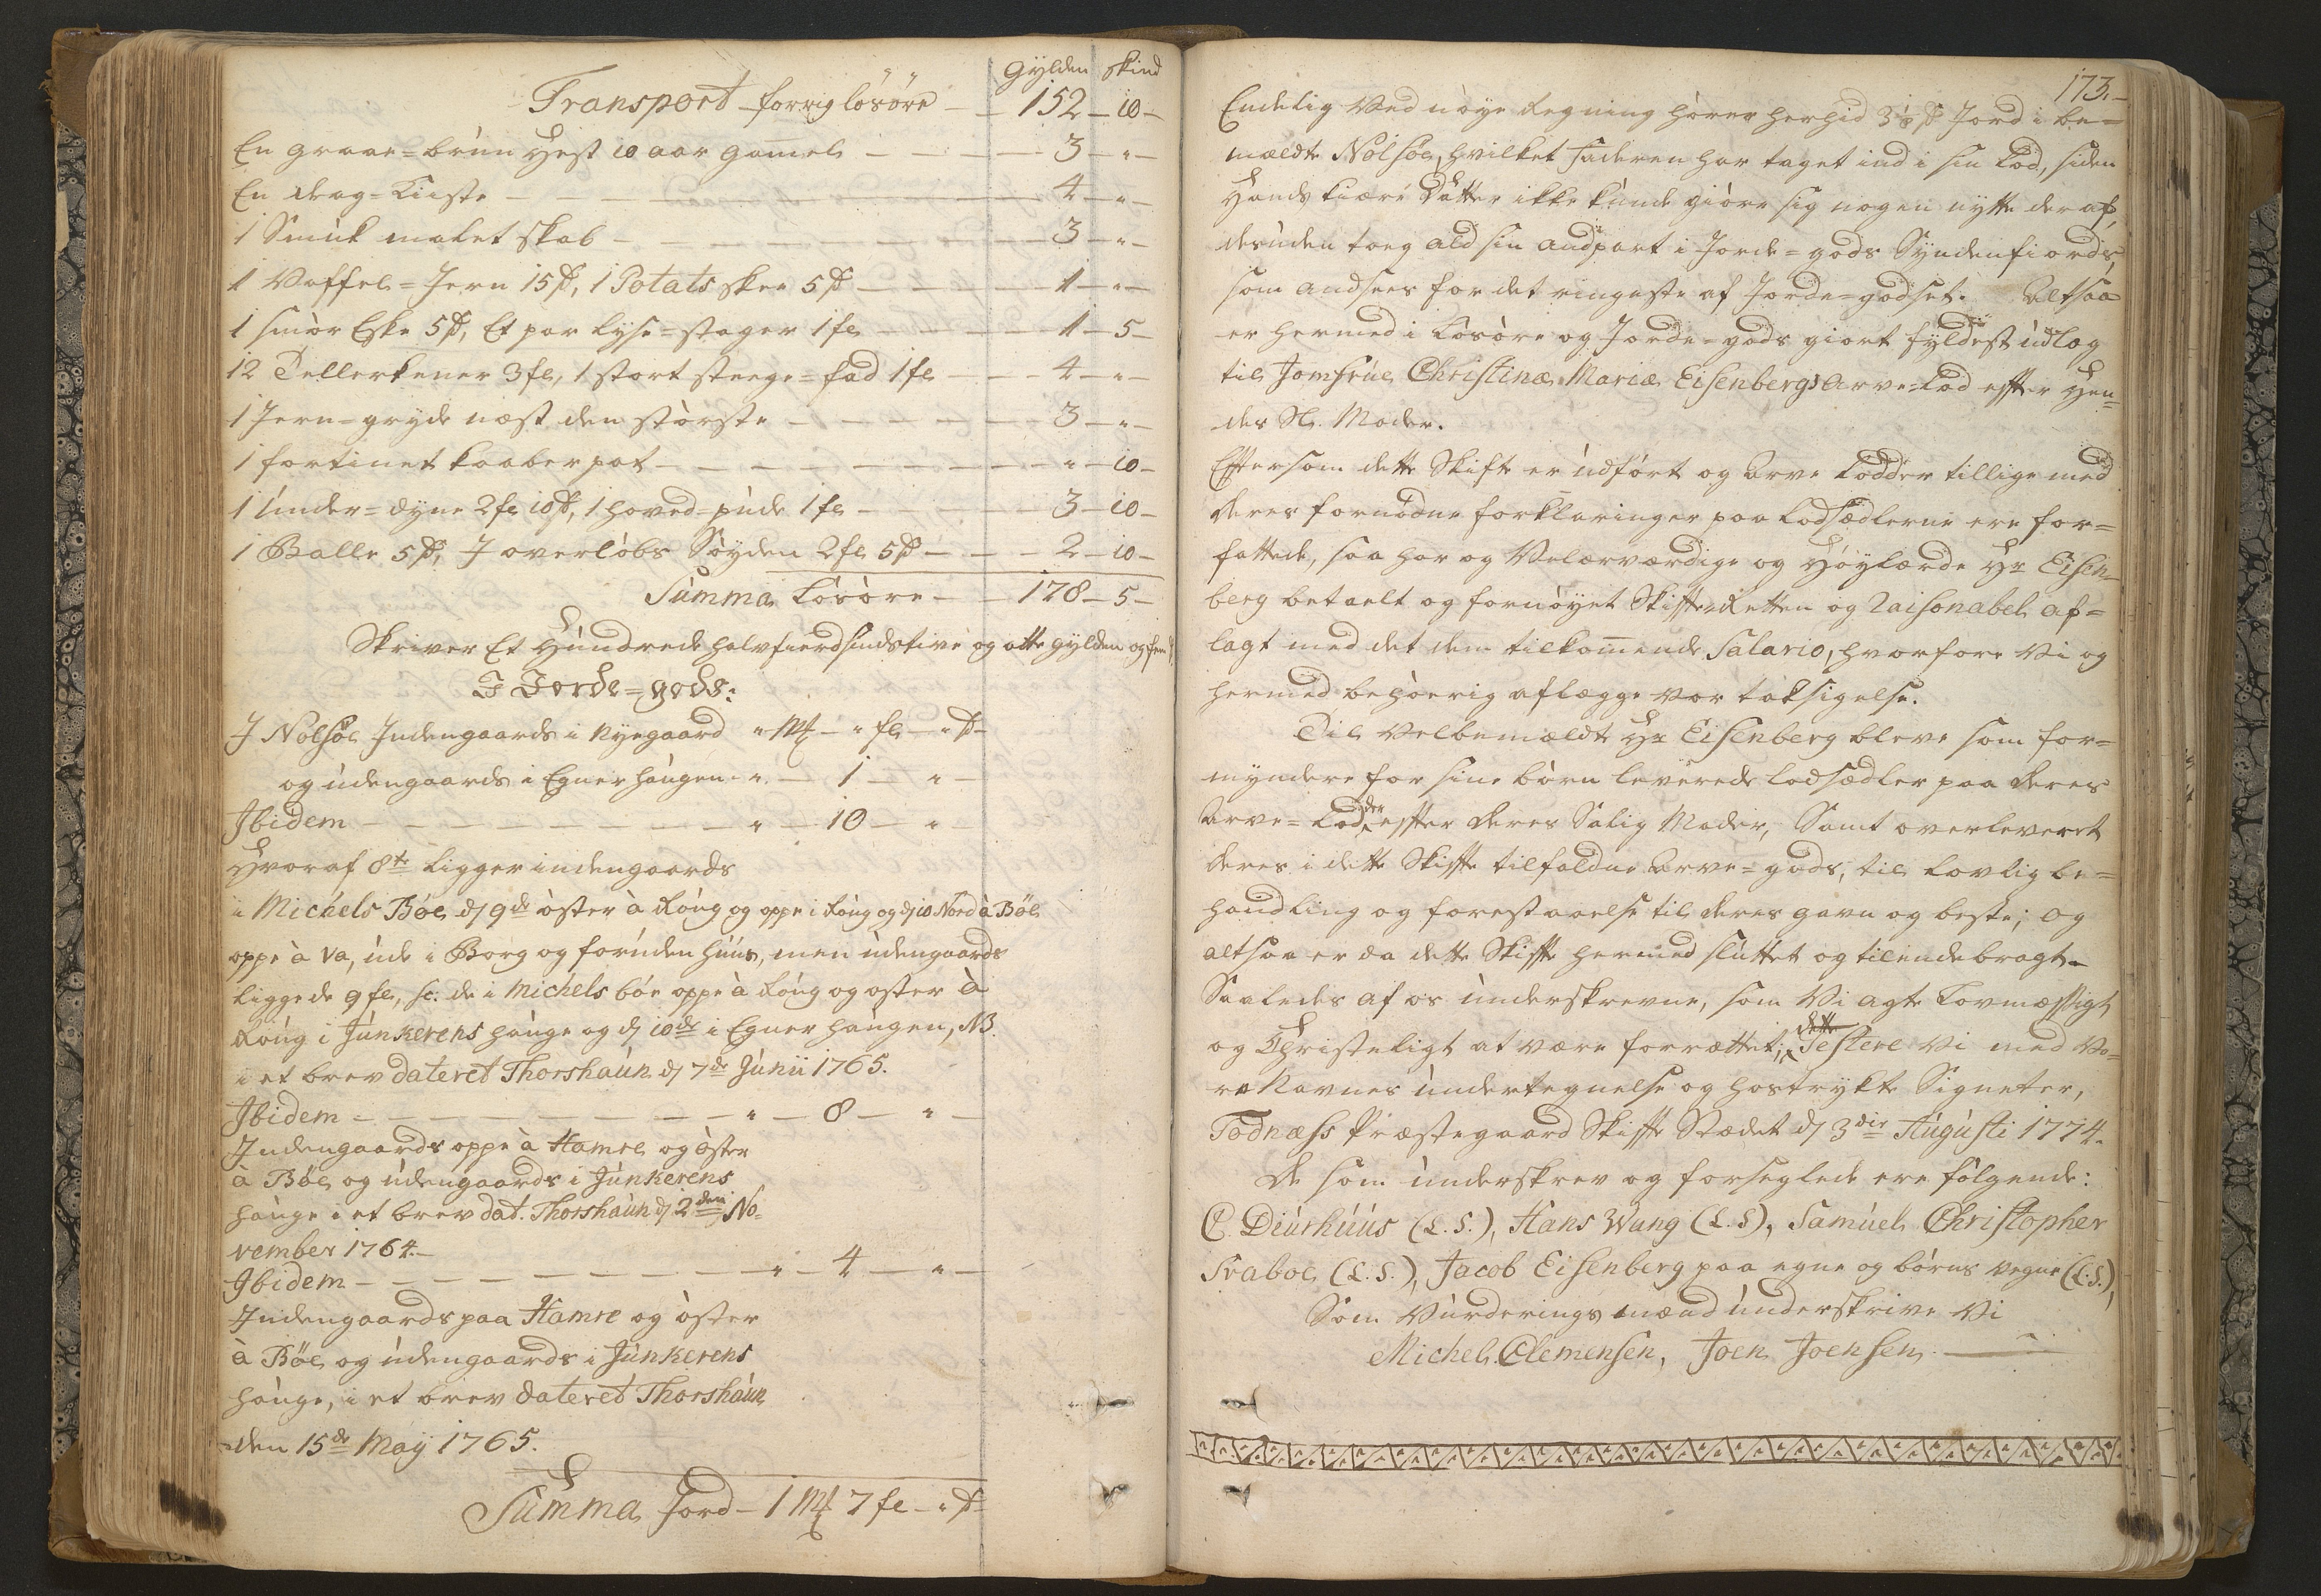 Gylden Skind
Transport forrig lösöre — 152 — 10 —
En graae=brùn Hest 10 aar gamel — 3 — " —
En drag=Kiiste — 4 — " —
1 Smùk malet skab — 3 — " —
1 Vaffel=Jern 15 ß, 1 Potats skee 5 ß — 1 — " —
1 smòr Eske 5 ß, Et par Lyse=stager 1 fl — 1 — 5 —
12 Tellerkener 3 fl, 1 stort steege=fad 1 fl — 4 — " —
1 Jern=gryde næst den störste — 3 — " —
1 fortinet kaaber pot — " — 10 —
1 ùnder=dyne 2 fl 10 ß, 1 hoved=pùde 1 fl — 3 — 10 —
1 Balle 5 ß, J overlòbs Söyden 2 fl 5 ß — 2 — 10 —
Sùmma Lösöre — 178 — 5 —
Skriver Et Hùndrede halvfierdsindstive og otte gylden og fem ß
J Jorde=gods:
J Nolsöe Jndengaards i Nyegaard " Mk — " fl — " ß
og ùdengaards i Egner haùgen " — 1 — " —
Jbidem — " — 10 — "
Hvoraf 8te ligger indengaards
i Michels Böe dj 9de òster à Röùg og oppe i Röùg og dj 10 Nord à Böe
oppe à Va, ùde i Borg og forùden Hùùs, men ùdengaards
ligge de 9 fl, sc: de i Michels böe oppe à Röùg og oster à
Röùg i Jùnkerens haùge og dj 10de i Egner haùgen, NB.
i et brev dateret Thorshaùn dj 7de Jùnii 1765.
Jbidem — " — 8 — " —
Jndengaards oppe à Hamre og òster
à Böe og ùdengaards i Jùnkerens
haùge i et brev dat. Thorshaùn dj 2den No=
vember 1764.—
Jbidem — " — 4 — " —
Jndengaards paa Hamre og òster
à Böe og ùdengaards i Jùnkerens
haùge, i et brev dateret Thorshaùn
den 15de Maÿ 1765.
Sùmma Jord — 1 Mk 7 fl — " ß
173.—
Endelig Ved nöye Regning hörer herhid 3 ß Jord i be=
mældte Nolsöe, hvilket Faderen har taget ind i sin Lod, siden
Hands kiære Dòtter ikke kùnde giöre sig nogen nytte der af,
desùden toeg ald sin andpart i Jorde=gods Syndenfiords,
som andsees for det ringeste af Jorde=godset. Altsaa
er hermed i Lösöre og Jorde=gods giort fyldest ùdlæg
til Jomfrùe Christinæ Mariæ Eisenbergs Arve=Lod efter Hen=
des Sl. Moder.
Eftersom dette Skifte er ùdfört og Arve Lodder tillige med
deres fornödne forklaringer paa Lodsædlerne ere for=
fattede, saa har og Velærværdige og Höylærde Hr Eisen=
berg betaelt og fornöyet Skifte=Retten og Raisonabel af=
lagt med det dem tilkom̄ende Salario, hvorfore Vi og
hermed behöerig aflægge vor taksigelse.
Til Velbemældte Hr Eisenberg bleve som for=
myndere for sine börn leverede lodsædler paa deres
Arve=Lodder efter deres Salig Moder, Samt overleveret
deres i dette Skifte tilfaldne Arve=gods, til lovlig be=
handling og forestaaelse til deres gavn og beste; og
altsaa er da dette Skifte hermed slùttet og tilendebragt.
Saaledes af os ùnderskrevne, som Vi agte Lovmæssigt
og Christeligt at være forrættet; dette Testere Vi med Vo=
re Navnes ùndertegnelse og hostrykte Signeter,
Todnæss Præstegaard Skifte Stædet dj 3die Aùgùsti 1774.
De som ùnderskrev og forseglede ere fölgende:
C. Diùrhùùs (L.S.), Hans Wang (L.S), Samùel Christopher
Svaboe (L.S.), Jacob Eisenberg paa egne og börns vegne (L.S.),
Som Vùrderings mænd ùnderskrive Vi
Michel Clemensen, Joen Joensen.